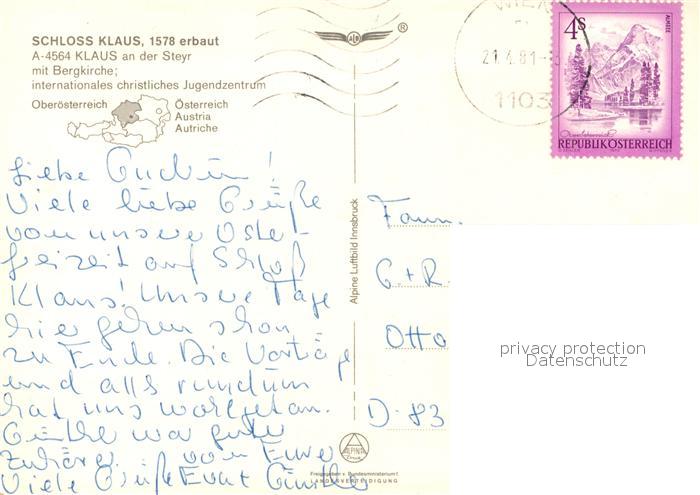 SCHLOSS KLAUS, 1578 erbaut
A-4564 KLAUS an der Steyr
mit Bergkirche;
internationales christliches Jugendzentrum
Oberösterreich
Österreich
Austria
Autriche
WIEN
21.4.81
1103
4 S
ALMSEE
Oberösterreich
REPUBLIK ÖSTERREICH
Liebe
Viele liebe Grüße
von unserer Oster-
freizeit auf Schloß
Klaus! Unsere Tage
hier gehen schon
zu Ende. Die Vorträge
und alls rundum
hat uns wohlgetan.
war guter
Zuhörer. von Eurer
Viele Grüße
Fam.
G+R.
Otto
D-83
Alpine Luftbild Innsbruck
ALPINE
Freigegeben v. Bundesministerium f.
LANDESVERTEIDIGUNG
privacy protection
Datenschutz